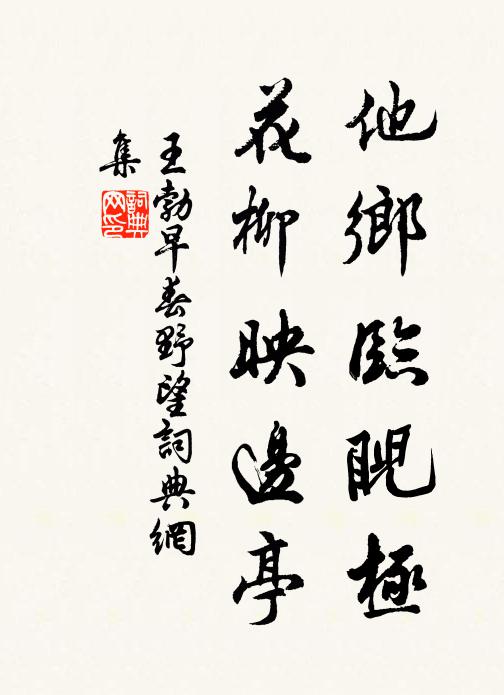 他鄉臨睨極
花柳映邊亭
王勃早春野望詞典網
集
詞典
网印